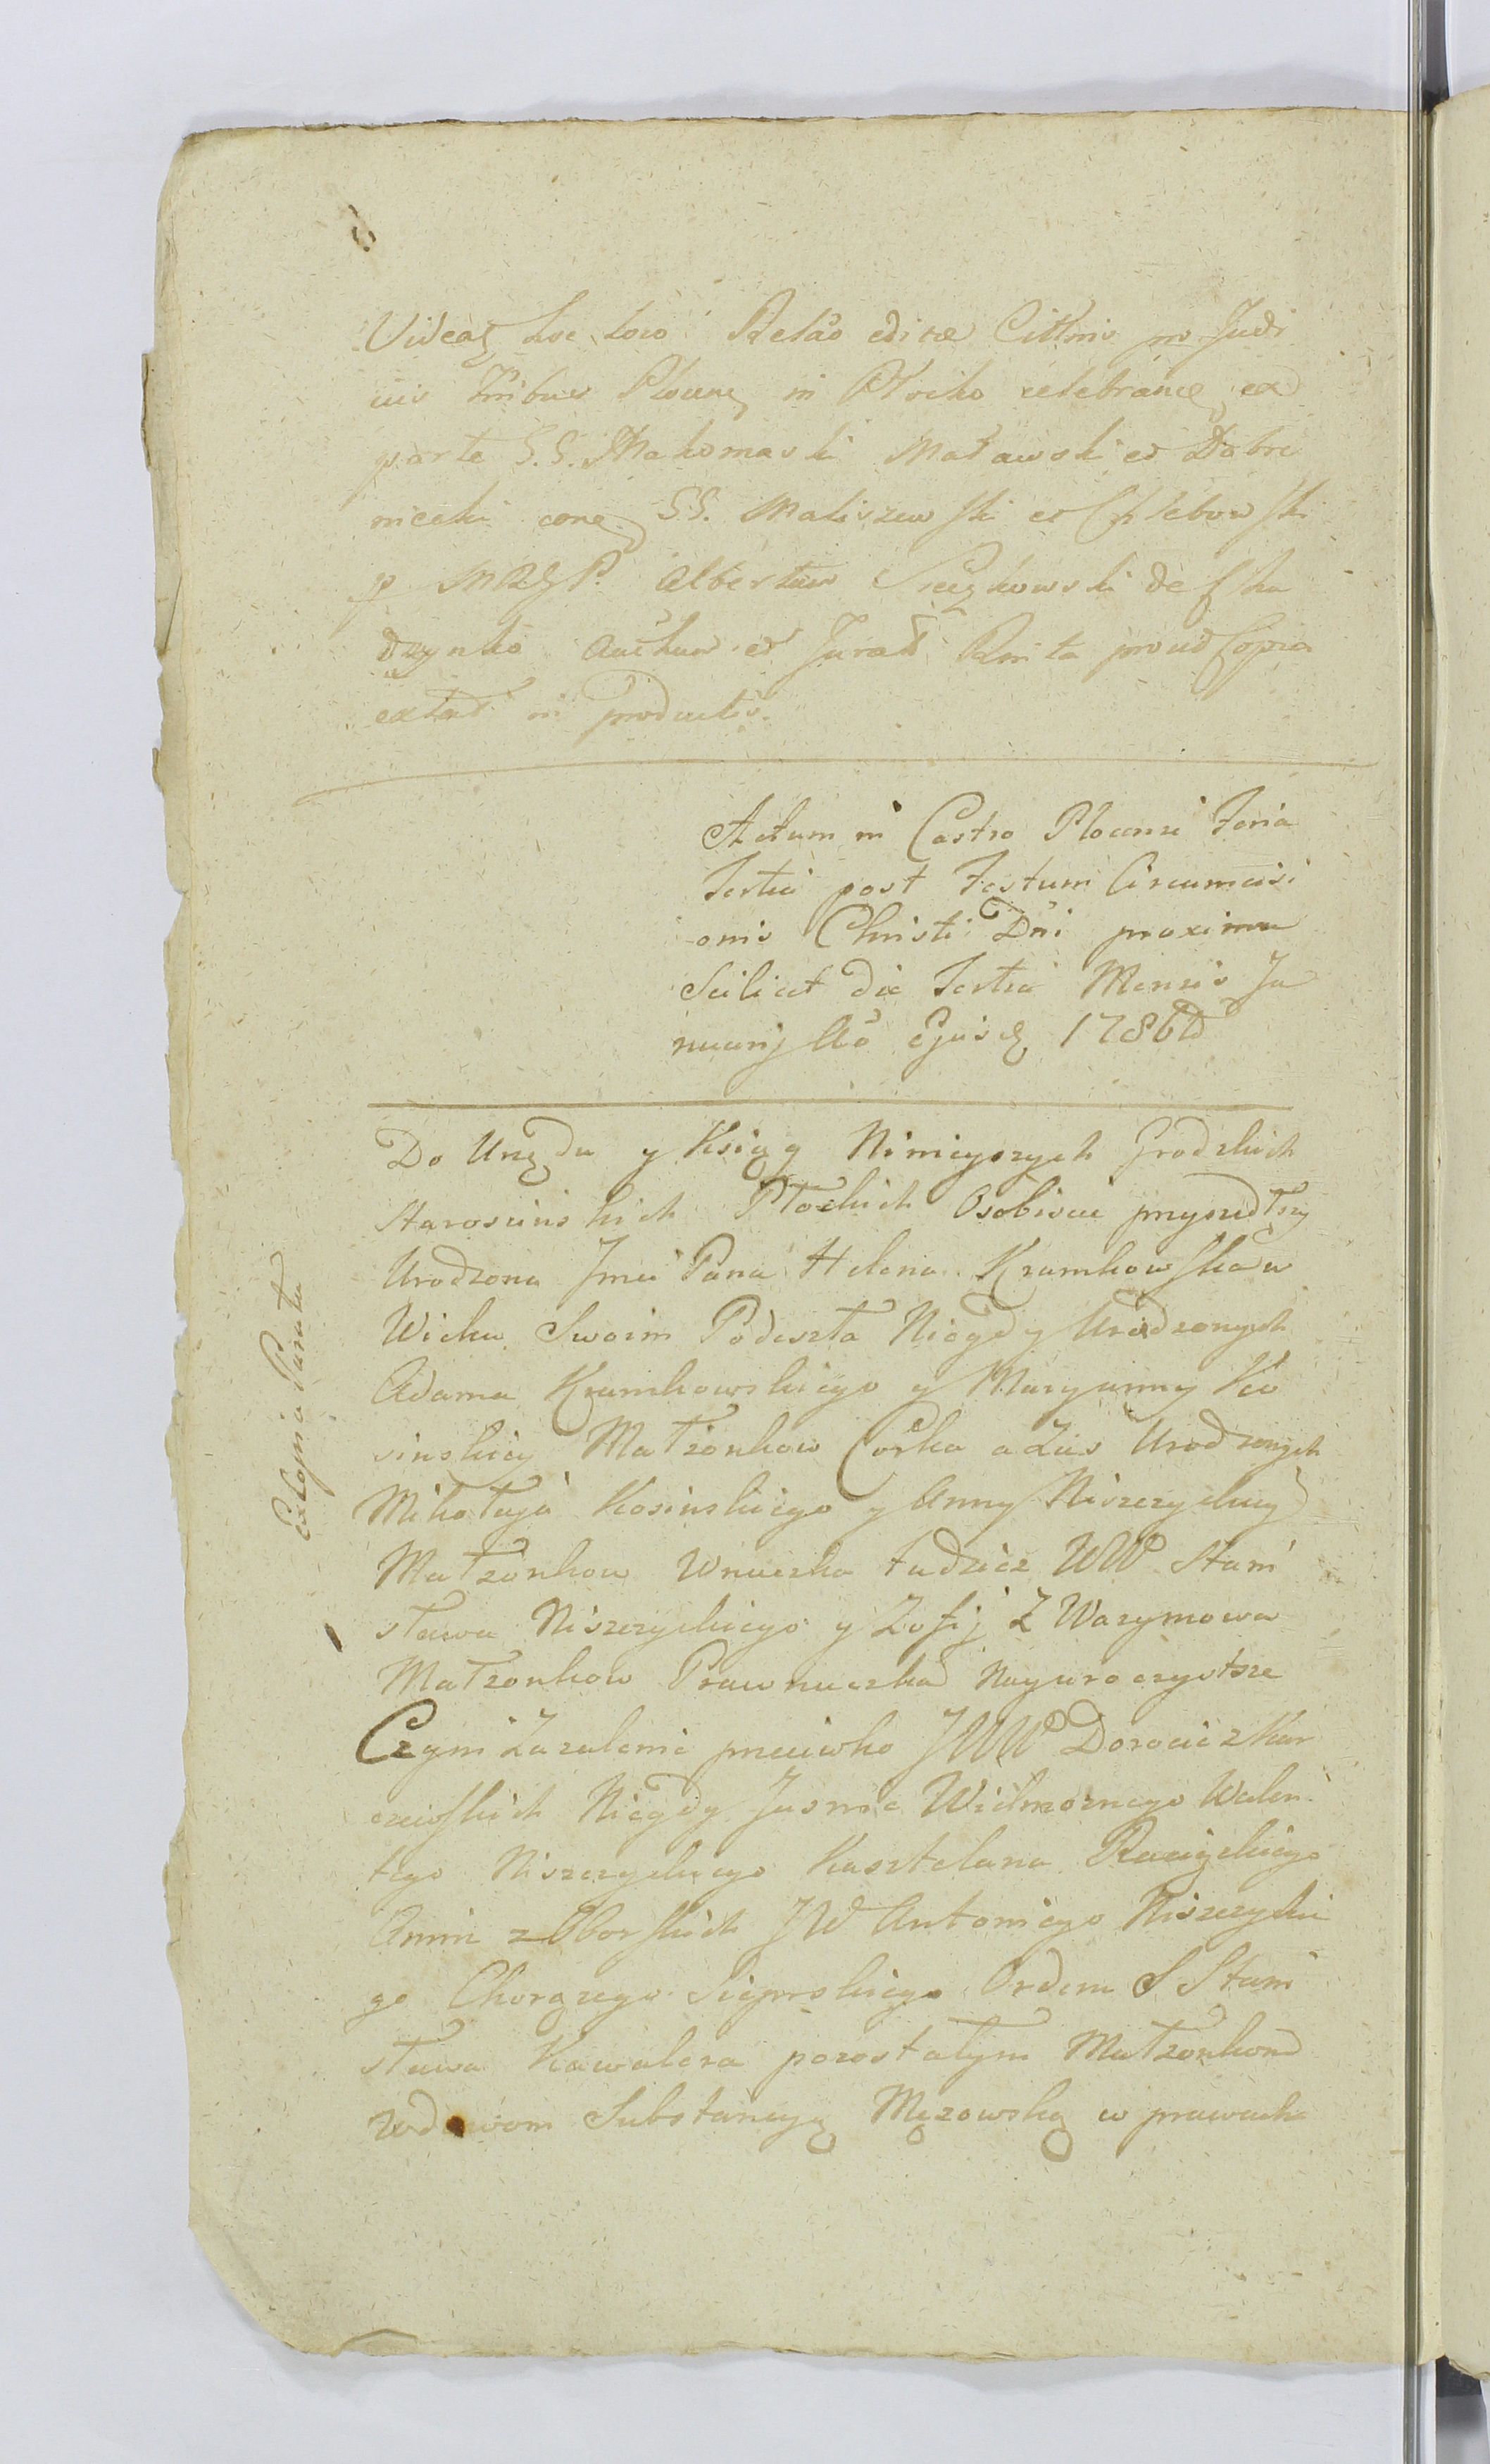 Videat hoc loco Relão editæ Cittnis pro Judi
ciis Tribus Plocens in Płocko celebrance ex
parte S.S. Makomaski Matawski et Dobre
niecki conq SS. Maliszewski et Chlebowski
p MRgP. Albertum Sieczkowski de Ska
dzynko Auctum et Jurat Rmita prout Copia
extat in productis.
Actum in Castro Plocensi Feria
Tertia post Festum Circumcisi
onis Christi Dñi proxima
Scilicet die Tertia Mensis Ja
nuarij Aõ Ejusq 1786td
Do Urzędu y Ksiąg Ninieyszych Grodzkich
Starościnskich Płockich Osobiscie przyszedłszy
Urodzona Jmć Pana Helena Krzumkowska w
Wieku Swoim Podeszła Niegdy Urodzonych
Adama Krzumkowskiego y Maryanny Ko
sinskiey Małżonkow Corka a Zas Urodzonych
Mikołaja Kosinskiego y Anny Niszczyckiey
Małżonkow Wnuczka tudziez WW Stani
sława Niszczyckiego y Zofij Z Warzymowa
Małżonkow Prawnuczka Nayuroczystsze
Czyni Zazalenie przeciwko JWW Dorocie z Kar
czewskich Niegdy Jasnie Wielmoznego Walen
tego Niszczyckiego Kasztelana Raciązkiego
Annie z Oborskich JW Antoniego Niszczyckie
go Chorązego Sieprskiego Orderu S Stani
sława Kawalera pozostałym Małżonkom
wdowom Substancyą Męzowską w prawach
Copia Parata